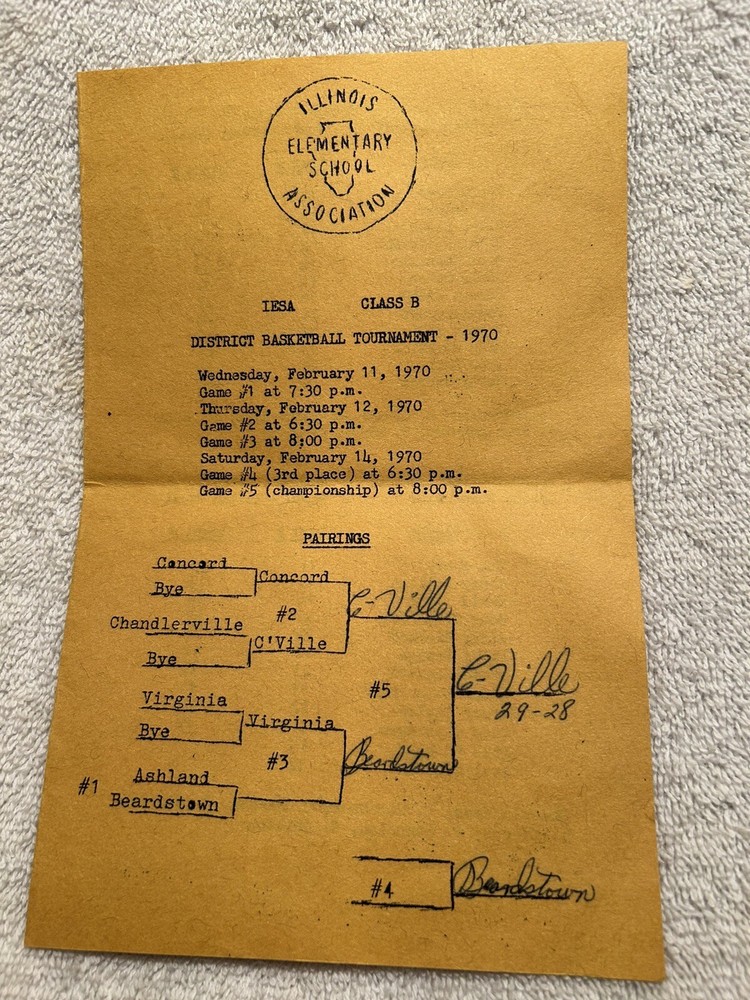 ILLINOIS
ELEMENTARY
SCHOOL
ASSOCIATION
IESA CLASS B
DISTRICT BASKETBALL TOURNAMENT - 1970
Wednesday, February 11, 1970
Game #1 at 7:30 p.m.
Thursday, February 12, 1970
Game #2 at 6:30 p.m.
Game #3 at 8:00 p.m.
Saturday, February 14, 1970
Game #4 (3rd place) at 6:30 p.m.
Game #5 (championship) at 8:00 p.m.
PAIRINGS
Concord
Bye
Concord
#2
C-Ville
Chandlerville
C'Ville
Bye
#5
C-Ville
29-28
Virginia
Bye
Virginia
#3
Beardstown
#1
Ashland
Beardstown
#4
Beardstown